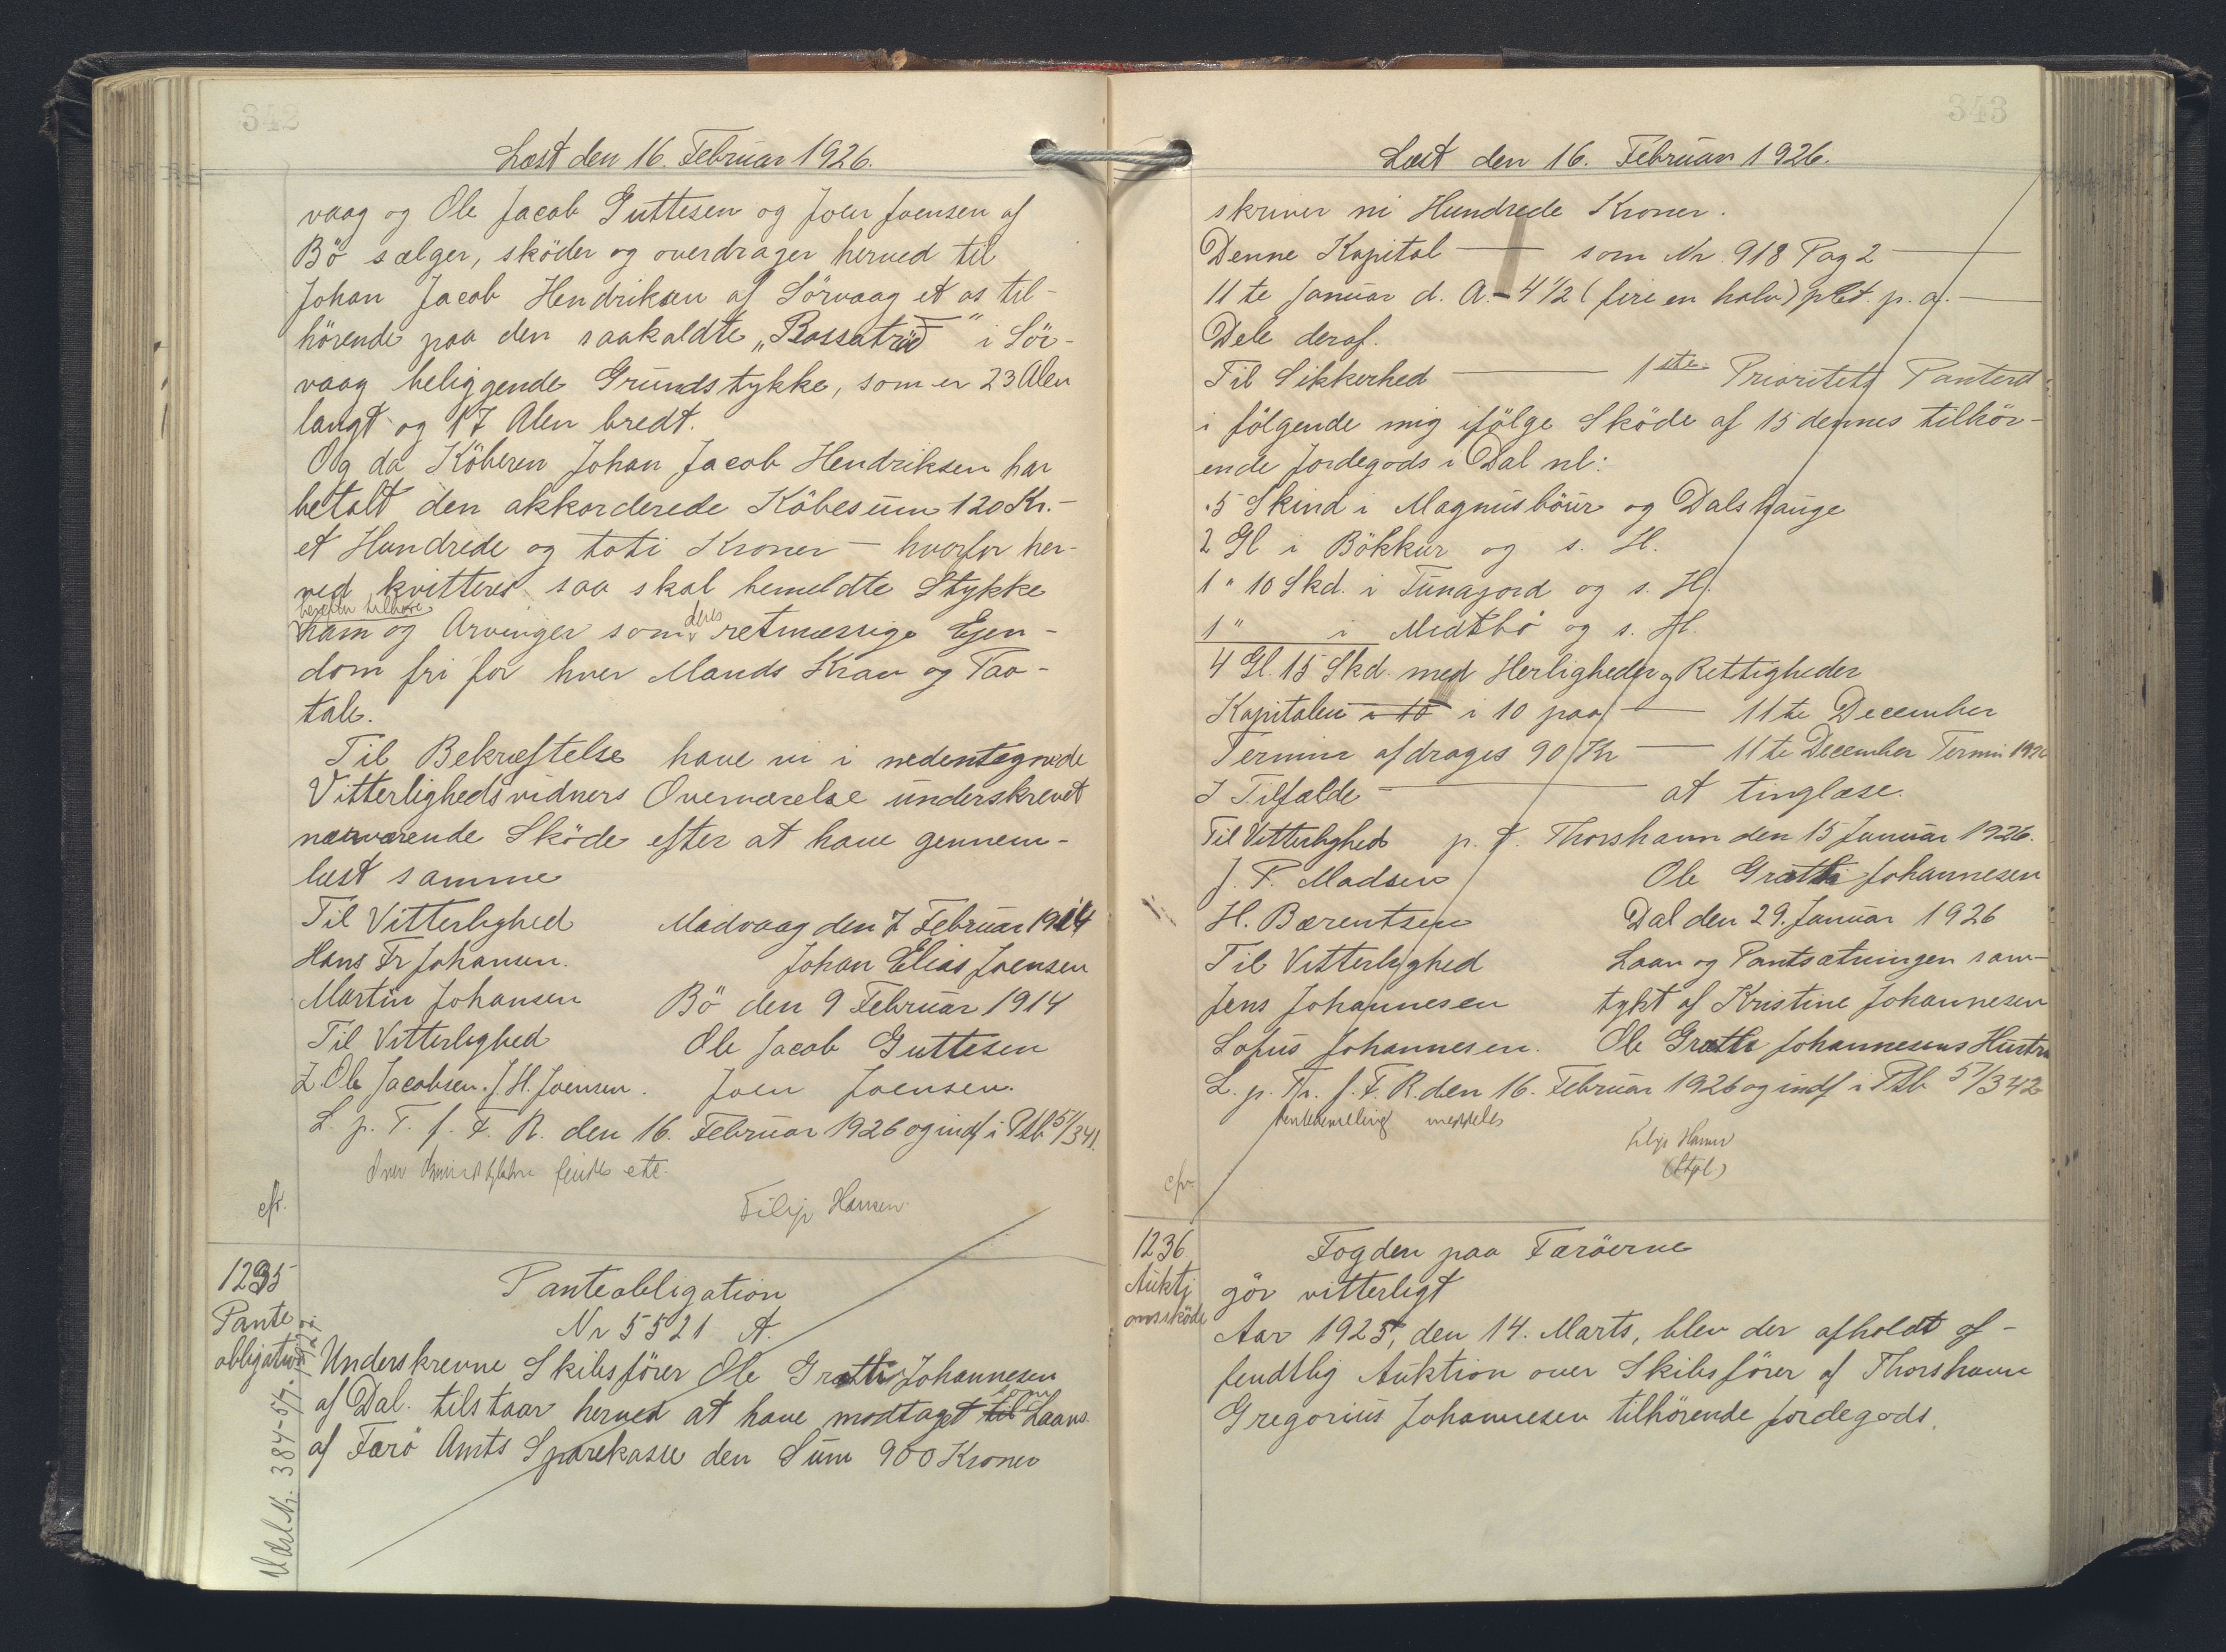 342
Læst den 16. Februar 1926.
vaag og Ole Jacob Guttesen og Joen Joensen af
Bö sælger, sköder og overdrager herved til
Johan Jacob Hendriksen af Sörvaag et os til-
hörende paa den saakaldte „Bossatröd" i Sör-
vaag beliggende Grundstykke, som er 23 Alen
langt og 17 Alen bredt.
Og da Köberen Johan Jacob Hendriksen har
betalt den akkorderede Köbesum 120 Kr.-
et Hundrede og toti Kroner - hvorfor her-
ved kvitteres saa skal bemeldte Stykke
herefter tilhøre
ham og Arvinger som deres retmæssige Ejen-
dom fri for hver Mands Krav og Paa-
tale.
Til Bekræftelse have vi i nedentegnede
Vitterlighedsvidners Overværelse underskrevet
nærværende Sköde efter at have gennem-
læst samme
Til Vitterlighed Midvaag den 7 Februar 1914
Hans Fr Johansen. Johan Elias Joensen
Martin Johansen Bö den 9 Februar 1914
Til Vitterlighed Ole Jacob Guttesen
Z. Ole Jacobsen. J. H. Joensen. Joen Joensen.
L. p. T. f. F. R. den 16. Februar 1926 og indf i Ptb 51/341.
etc.
cfr. Filip Hansen
1235 Panteobligation
Pante Nr 5521 A.
obligation Underskrevne Skibsförer Ole Grætte Johannesen
af Dal. tilstaar herved at have modtaget til som Laans
af Færö Amts Sparekasse den Sum 900 Kroner
384-57.
343
Læst den 16. Februar 1926.
skriver ni Hundrede Kroner.
Denne Kapital — som Nr. 918 Pag 2 —
11te Januar d. A. - 4 1/2 (fire en halv) pCt. p. a. —
Dele deraf.
Til Sikkerhed — 1ste Prioritets Panteret
i fölgende mig ifölge Sköde af 15 dennes tilhör-
ende Jordegods i Dal nl:
5 Skind i Magnusböur og Dals Hauge
2 Gl i Bökkur og s. H.
1 " 10 Skd. i Tunajord og s. H.
1 " i Midtbö og s. H.
4 Gl. 15 Skd. med Herligheder og Rettigheder
Kapitalen i 10 i 10 paa — 11te December
Termin afdrages 90 Kr — 11te December Termin 1926
I Tilfælde — at tinglæse.
Til Vitterlighed p. t. Thorshavn den 15 Januar 1926.
J. P. Madsen Ole Grætte Johannesen
H. Bærentsen Dal den 29. Januar 1926
Til Vitterlighed Laan og Pantsætningen sam-
Jens Johannesen tykt af Kristine Johannesen
Lofus Johannesen. Ole Grætte Johannesens Hustru
L. p. Tr. f. F. R. den 16. Februar 1926 og indf i Ptb 51/342
meddeles
Filip Hansen
(Stpl.)
cfr.
1236 Fogden paa Færöerne
Aukti gör vitterligt
onssköde Aar 1925, den 14. Marts, blev der afholdt of-
fendtlig Auktion over Skibsförer af Thorshavn
Gregorius Johannesen tilhörende Jordegods.